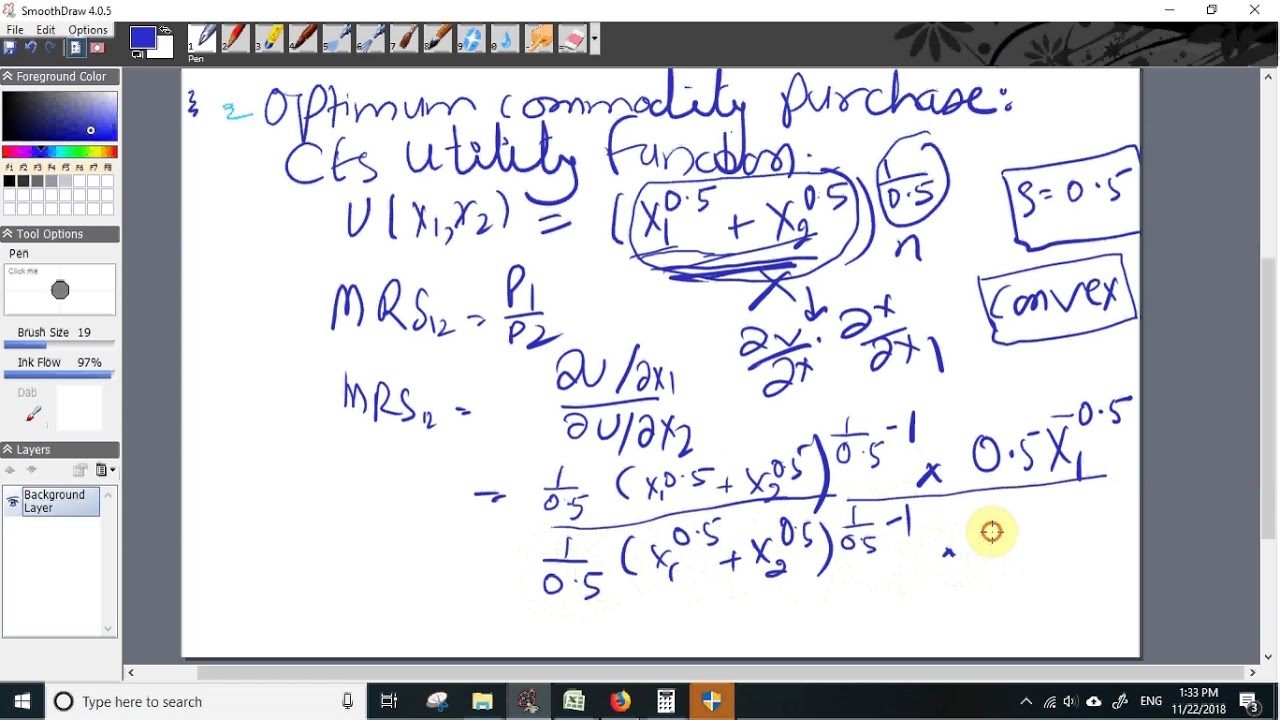 SmoothDraw 4.0.5
File Edit Options
Pen
Foreground Color
F1 F2 F3 F4 F5 F6 F7 F8
Tool Options
Pen
Click me
Brush Size 19
Ink Flow 97%
Dab
Layers
Background Layer
Optimum commodity purchase:
CES utility function:
U(x1,x2) = (x1^0.5 + x2^0.5)^1/0.5
n
x
ρ=0.5
convex
MRS12 = P1/P2
∂U/∂x · ∂x/∂x1
MRS12 = ∂U/∂x1
∂U/∂x2
= 1/0.5 (x1^0.5 + x2^0.5)^1/0.5 -1 × 0.5 x1^-0.5
1/0.5 (x1^0.5 + x2^0.5)^1/0.5 -1 ×
Type here to search
ENG
1:33 PM
11/22/2018
3